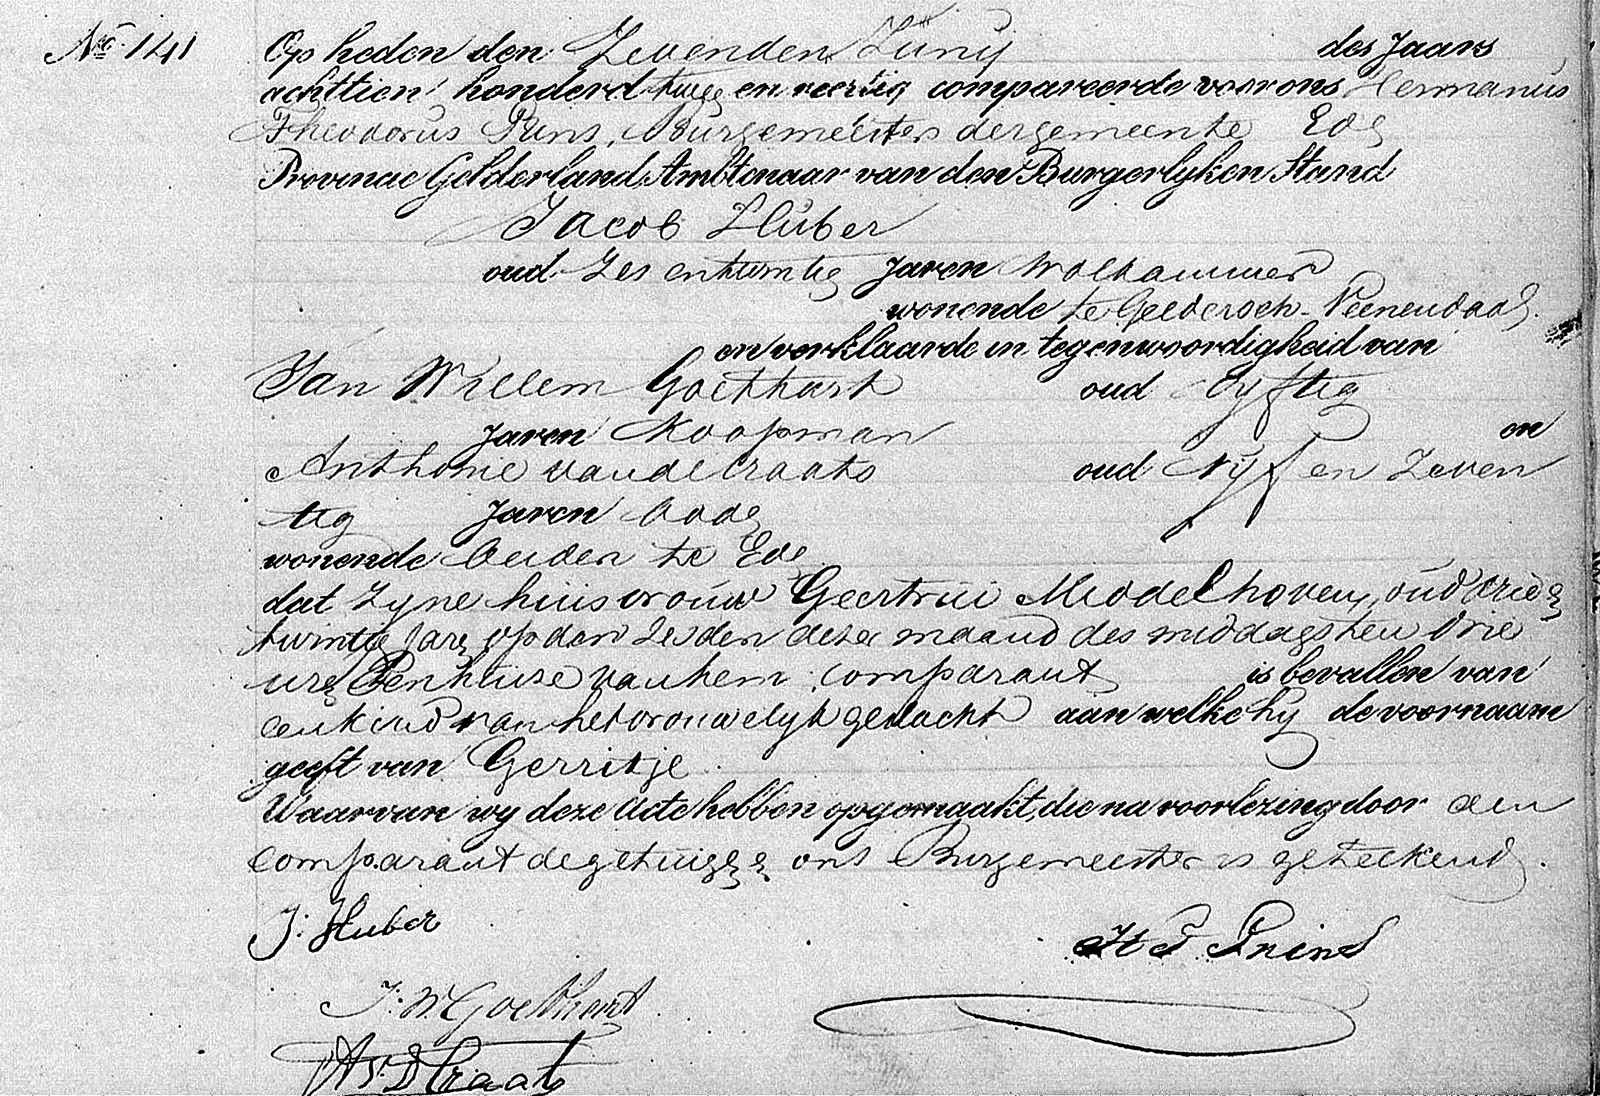 No. 141 Op heden den Zevenden Junij des Jaars
achttien honderd twee en veertig compareerde voor ons Hermanus
Theodorus Prins, Burgemeester der gemeente Ede
Provincie Gelderland, Ambtenaar van den Burgerlyken Stand
Jacob Huber
oud Zes en twintig Jaren Wolkammer
wonende te Geldersch-Veenendaal
en verklaarde in tegenwoordigheid van
Jan Willem Goethart oud Vyftig
Jaren Koopman en
Anthonie van de Craats oud Vyf en Zeven
tig Jaren bode
wonende beiden te Ede
dat Zyne huisvrouw Geertrui Middelhoven, oud drie
twintig Jare op den Zesden deze maand des middags ten drie
ure ten huise van hem comparant is bevallen van
een kind van het vrouwelyk geslacht aan welke hy de voornaam
geeft van Gerritje.
Waarvan wy deze acte hebben opgemaakt, die na voorlezing door den
comparant de getuigen ons Burgemeester is geteekend.
J. Huber
H T Prins
J. W. Goethart
A v. D Craats